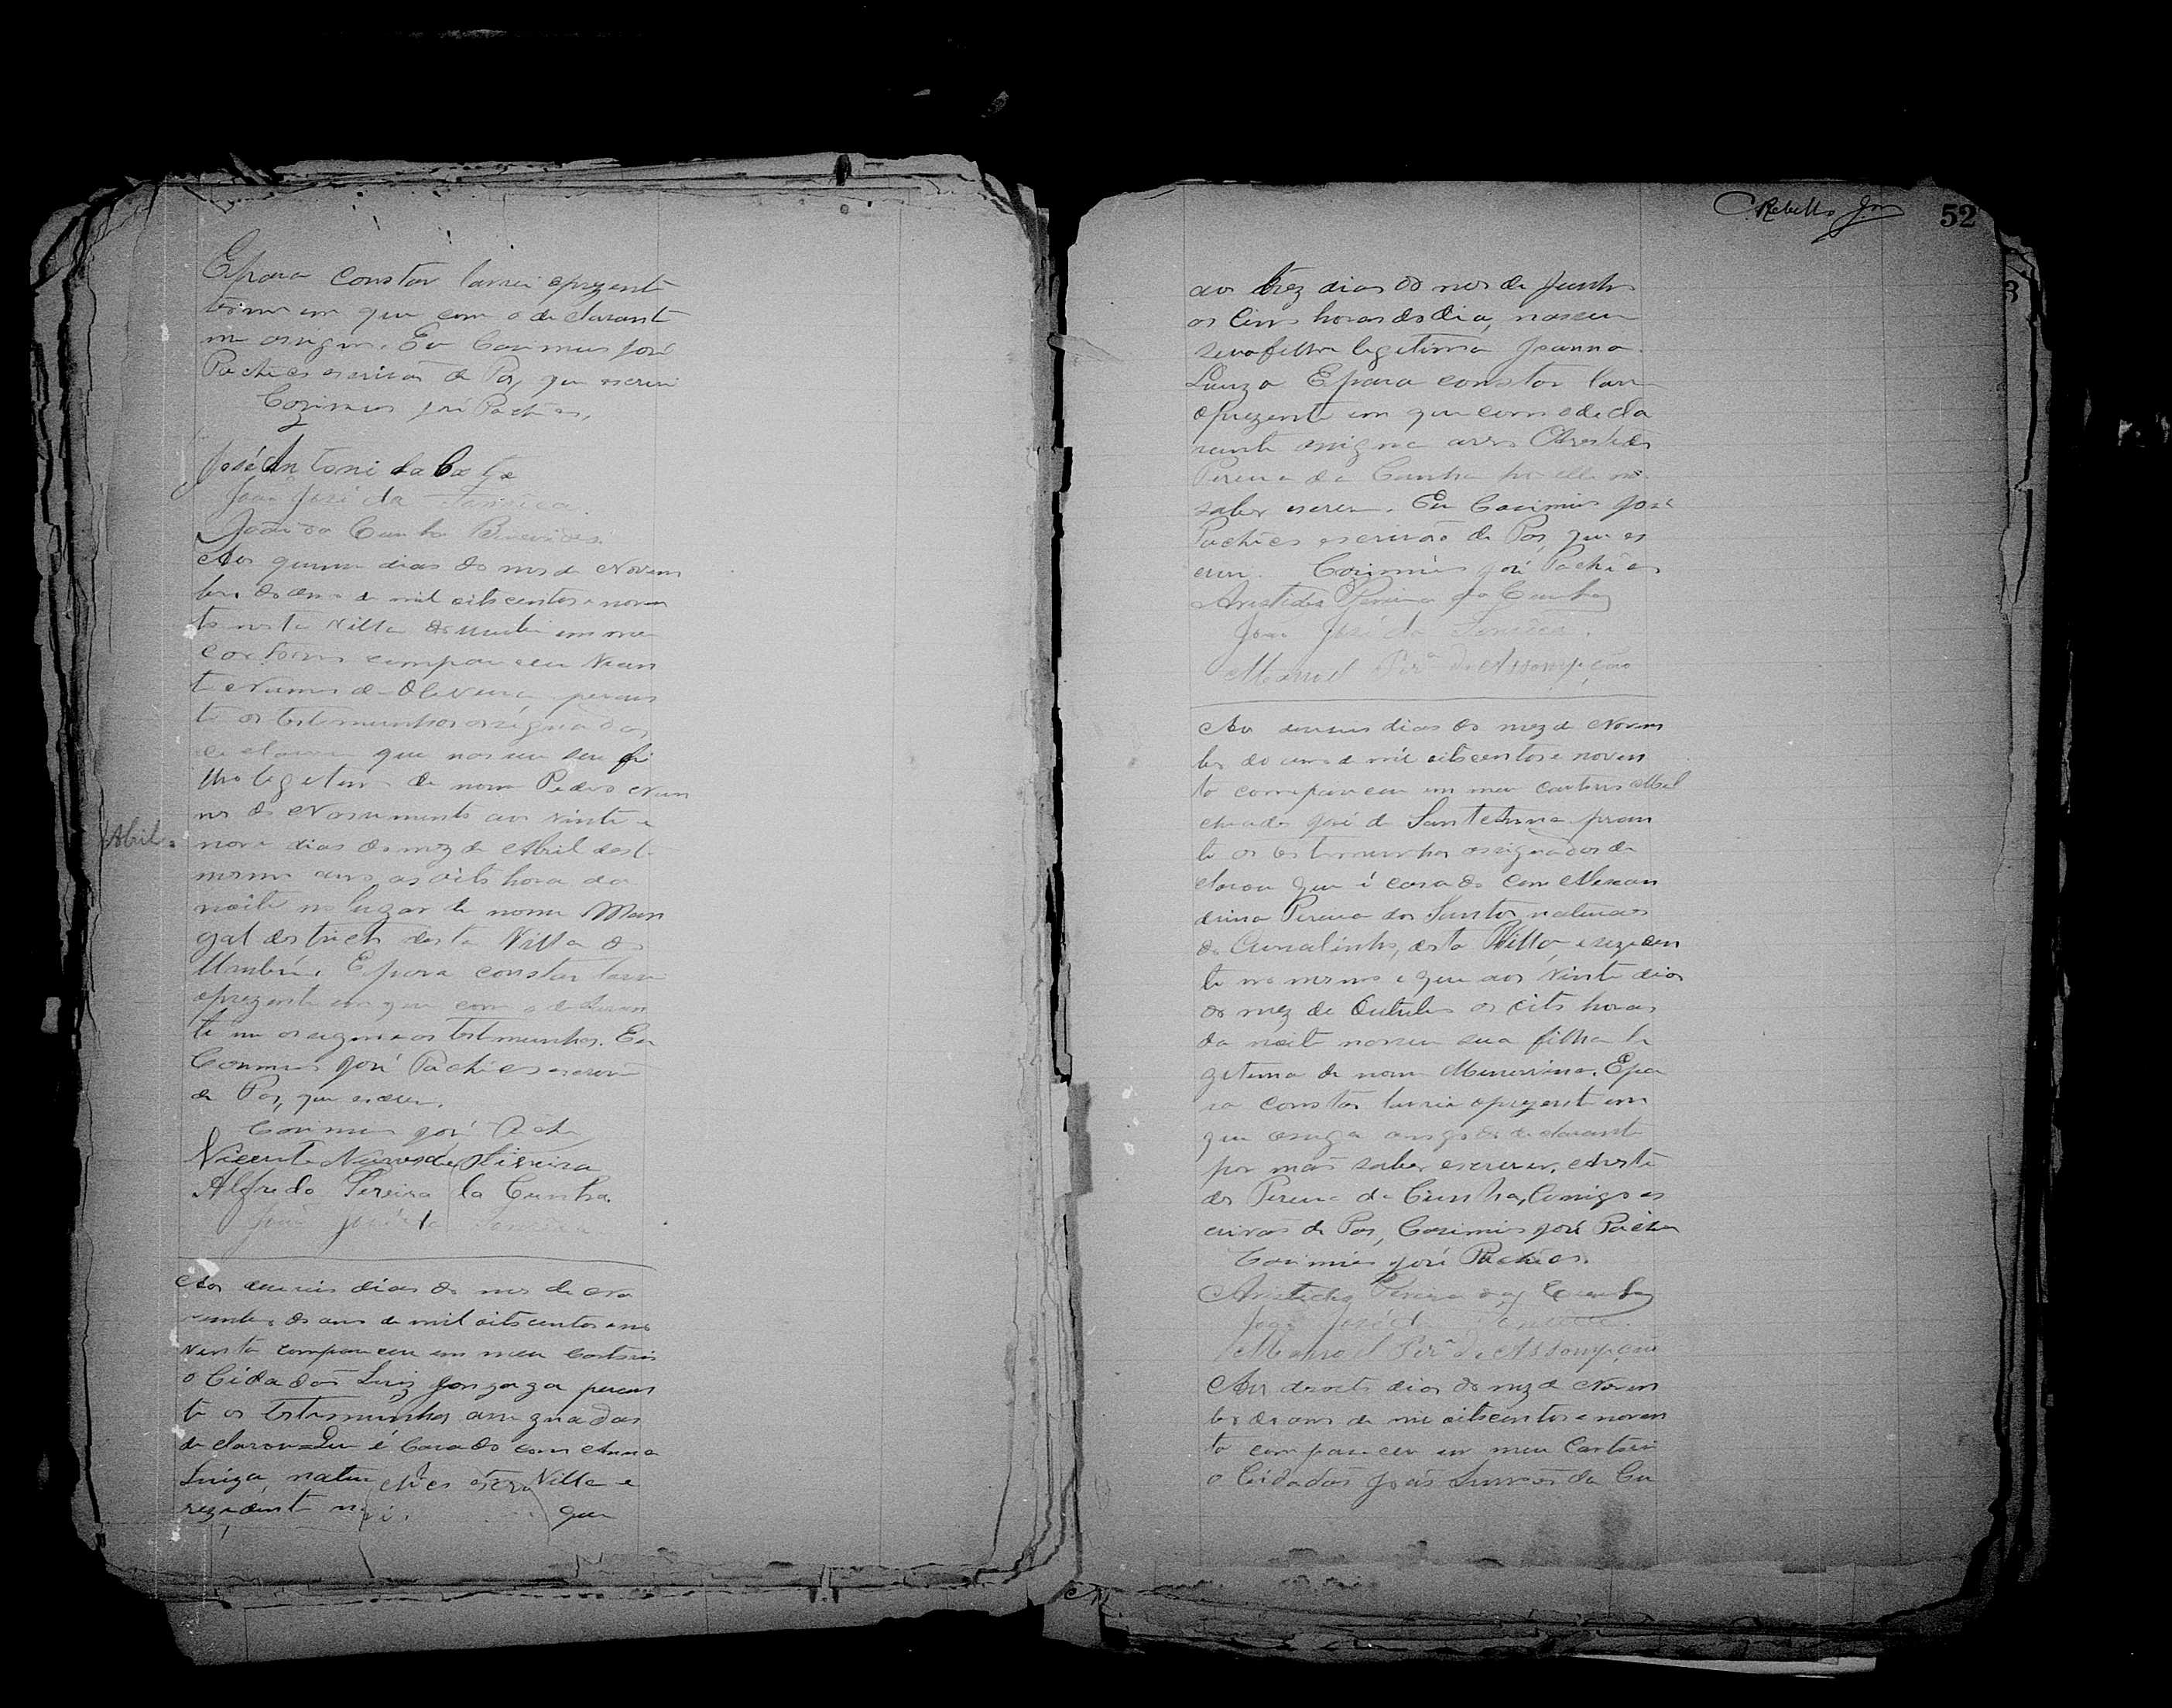 E para constar lavrei aprezente
termo em que com o declarante
me assigno. Eu Cosimiro José
Pachêco escrivão de Paz, que escrevi
Cozimiro José Pachêco,
José Antoni da Costa
João José da Fonsêca.
João da Cunha Benevides.
Aos quinze dias do mes de Novem
bro do anno de mil oitocentos e noven
ta nesta Villa do em meu
Cartorio compareceu Vicen
te Nunes de Oliveira peran
te os testemunhos assignados,
declarou que nasceu seu fi
lho legetimo de nome Pedro Nun
nes do Nascimento aos vinte e
Abril.
nove dias do mez de Abril deste
mesmo anno, as oito hora da
noite no lugar de nome Man
gal destricto desta Villa do
E para constar lavrei
aprezente em que com o declaran
te me assigno e os testemunhos. Eu
Cosimiro José Pachêco escrivão
de Paz, que escrevi.
Cosimiro José Pachêco
Vicente Nunes de Oliveira
Alfredo Pereira da Cunha.
João José da Fonsêca
Aos dezeseis dias do mes de No
vembro do anno de mil oitocentos e no
venta compareceu em meu Cartorio
o Cidadão Luiz Gonzaga peran
te os testemunhos assignados
declarou Que é Casado com Anna
Luiza, natu desta Villa e
rezedente que
C. Rebello Jor
52
aos trez dias do mes de Junho
as Cinco horas do dia, nasceu
sua filha legitima Joanna
Luiza E para constar lavrei
aprezente em que com o decla
rante assigna a rogo Aristides
Pereira da Cunha por elle não
saber escrever. Eu Cosimiro José
Pachêco escrivão de Paz, que es
crevi. Cosimiro José Pachêco
Aristides Pereira da Cunha
João José da Fonsêca.
Manoel Perª da Assompção
Aos dezeseis dias do mez de Novem
bro do anno de mil oitocentos e noven
ta compareceu em meu Cartorio Mel
chiades José de Sant'Anna peran
te os testemunhos assignados de
clarou que é casado com Alexan
drina Pereira dos Santos, naturaes
do Curralinho, desta Villa, e rezeden
te no mesmo e que aos vinte dias
do mez de Outubro as oito horas
da noite nasceu sua filha le
getima de nome Minervina. E pa
ra constar lavrei aprezente em
que assigna a rogo do declarante
por não saber escrever, Aristi
des Pereira da Cunha, Comigo es
crivão de Paz, Cosimiro José Pachêco
Cosimiro José Pachêco.
Aristides Pereira da Cunha
João José da Fonsêca.
Manoel Perª da Assompção
Aos dezoito dias do mez de Novem
bro do anno de mil oitocentos e noven
ta compareceu em meu Cartorio
o Cidadão João Simões da Cu